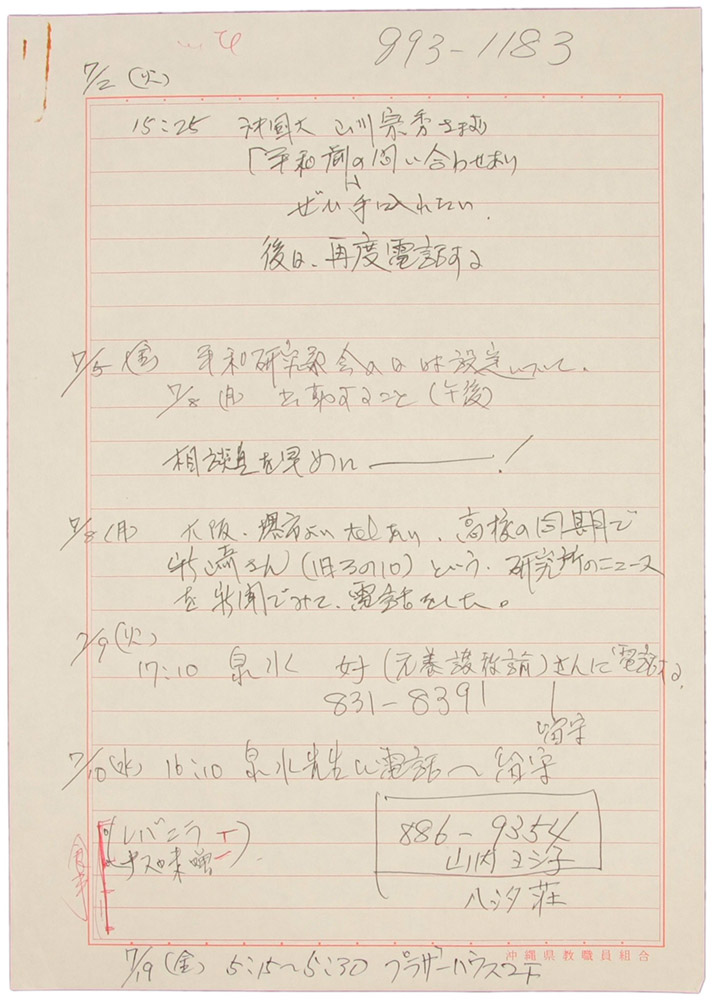 893-1183
7/2 (火)
15:25 沖国大 山川宗秀さまより
「平和創の問い合わせあり
ぜひ手に入れたい.
後日、再度電話する
7/5 (金) 平和研究委員会の日時設定について.
7/8 (月) 出勤すること (午後)
相談員を早めに ――― !
7/8 (月) 大阪・堺市よりtelあり、高校の同期で
新崎さん (旧3の10) という. 研究所のニュース
を新聞でみて、電話をした。
7/9 (火)
17:10 泉水 好 (元養護教諭) さんに電話する.
831-8391
留守
7/10 (水) 16:10 泉水先生に電話へ 留守
レバニラ
ナスの味噌
886-9354
山内 ヨシ子
八汐荘
沖縄県教職員組合
7/19 (金) 5:15~5:30 プラザーハウス